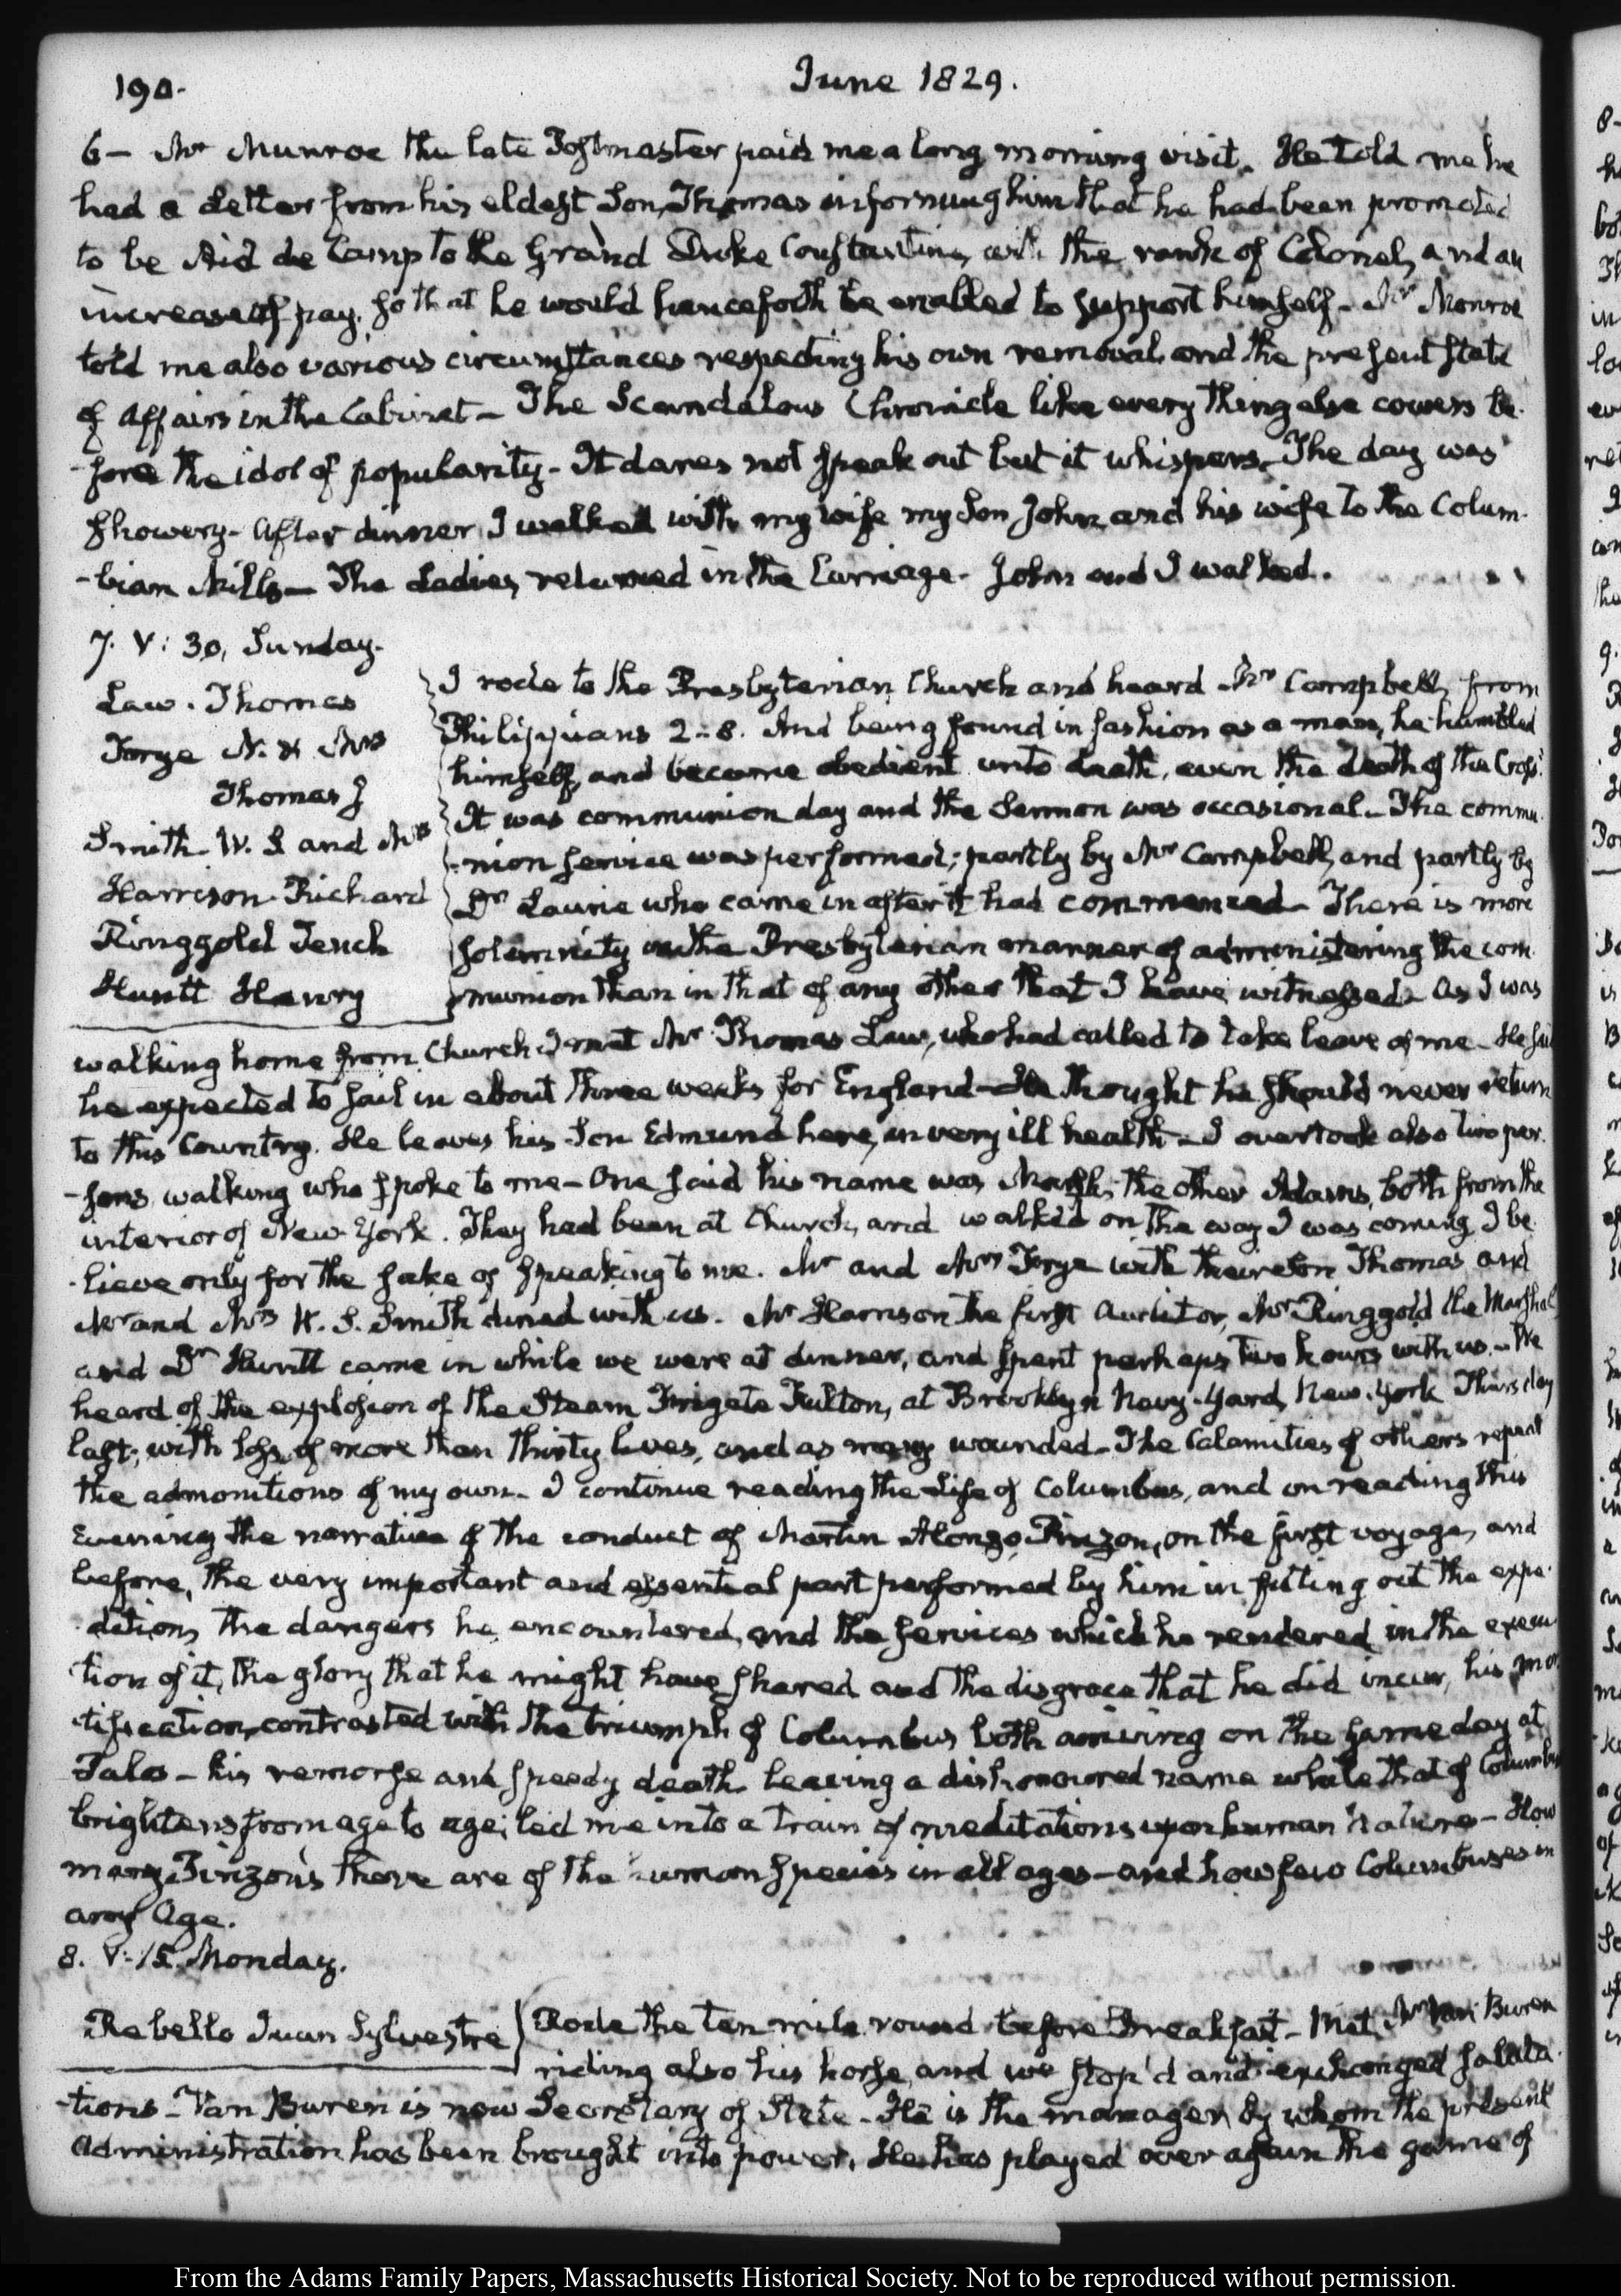 190.
June 1829.
6 — Mr Munroe the late Postmaster paid me a long morning visit. He told me he
had a Letter from his eldest Son, Thomas informing him that he had been promoted
to be Aid de Camp to the Grand Duke Constantine, with the rank of Colonel, and an
increase of pay, so that he would henceforth be enabled to support himself — Mr Monroe
told me also various circumstances respecting his own removal, and the present state
of Affairs in the Cabinet — The Scandalous Chronicle like every thing else cowers be-
-fore the idol of popularity — It dares not speak out but it whispers. The day was
showery — After dinner, I walked with my wife my Son John, and his wife to the Colum-
-bian Mills — The Ladies returned in the Carriage — John and I walked.
7. V: 30, Sunday.
Law. Thomas
Frye N. & Mrs
Thomas J
Smith. W. S and Mrs
Harrison Richard
Ringgold Tench
Huntt Henry
I rode to the Presbyterian Church and heard Mr Campbell, from
Philippians 2-8. And being found in fashion as a man, he humbled
himself, and became obedient unto death, even the death of the Cross.
It was communion day and the Sermon was occasional — The commu-
-nion service was performed; partly by Mr Campbell, and partly by
Dr Laurie who came in after it had commenced — There is more
solemnity in the Presbyterian manner of administering the com-
munion than in that of any other that I have witnessed — As I was
walking home from Church I met Mr Thomas Law, who had called to take leave of me — He said
he expected to sail in about three weeks for England — He thought he should never return
to this Country. He leaves his Son Edmund here, in very ill health — I overtook also two per-
-sons walking who spoke to me — One said his name was the other Adams, both from the
interior of New-York. They had been at Church, and walked on the way I was coming, I be-
-lieve only for the sake of speaking to me. Mr and Mrs Frye with their Son Thomas and
Mr and Mrs W. S. Smith dined with us. Mr Harrison the first Auditor, Mr Ringgold the Marshal,
and Dr Huntt came in while we were at dinner, and spent perhaps two hours with us — We
heard of the explosion of the Steam Frigate Fulton, at Brooklyn Navy-Yard, New-York Thursday
last; with loss of more than thirty lives, and as many wounded — The Calamities of others repeat
the admonitions of my own — I continue reading the Life of Columbus, and on reading this
Evening the narrative of the conduct of Martin Alonzo Pinzon, on the first voyage, and
before, the very important and essential part performed by him in fitting out the expe-
-dition, the dangers he encountered, and the services which he rendered in the execu-
tion of it, the glory that he might have shared and the disgrace that he did incur, his mor-
-tification, contrasted with the triumph of Columbus both arriving on the same day at
Palos — his remorse and speedy death leaving a dishonoured name while that of Columbus
brightens from age to age; led me into a train of meditations upon human nature — How
many Pinzons there are of the human Species in all ages — and how few Columbuses in
any Age.
8. V: 15. Monday.
Rebello Juan Sylvestre
Rode the ten mile round before Breakfast — Met Mr Van Buren
riding also his horse, and we stop'd and exchanged saluta-
-tions — Van Buren is now Secretary of State — He is the manager, by whom the present
administration has been brought into power. He has played over again the game of
From the Adams Family Papers, Massachusetts Historical Society. Not to be reproduced without permission.